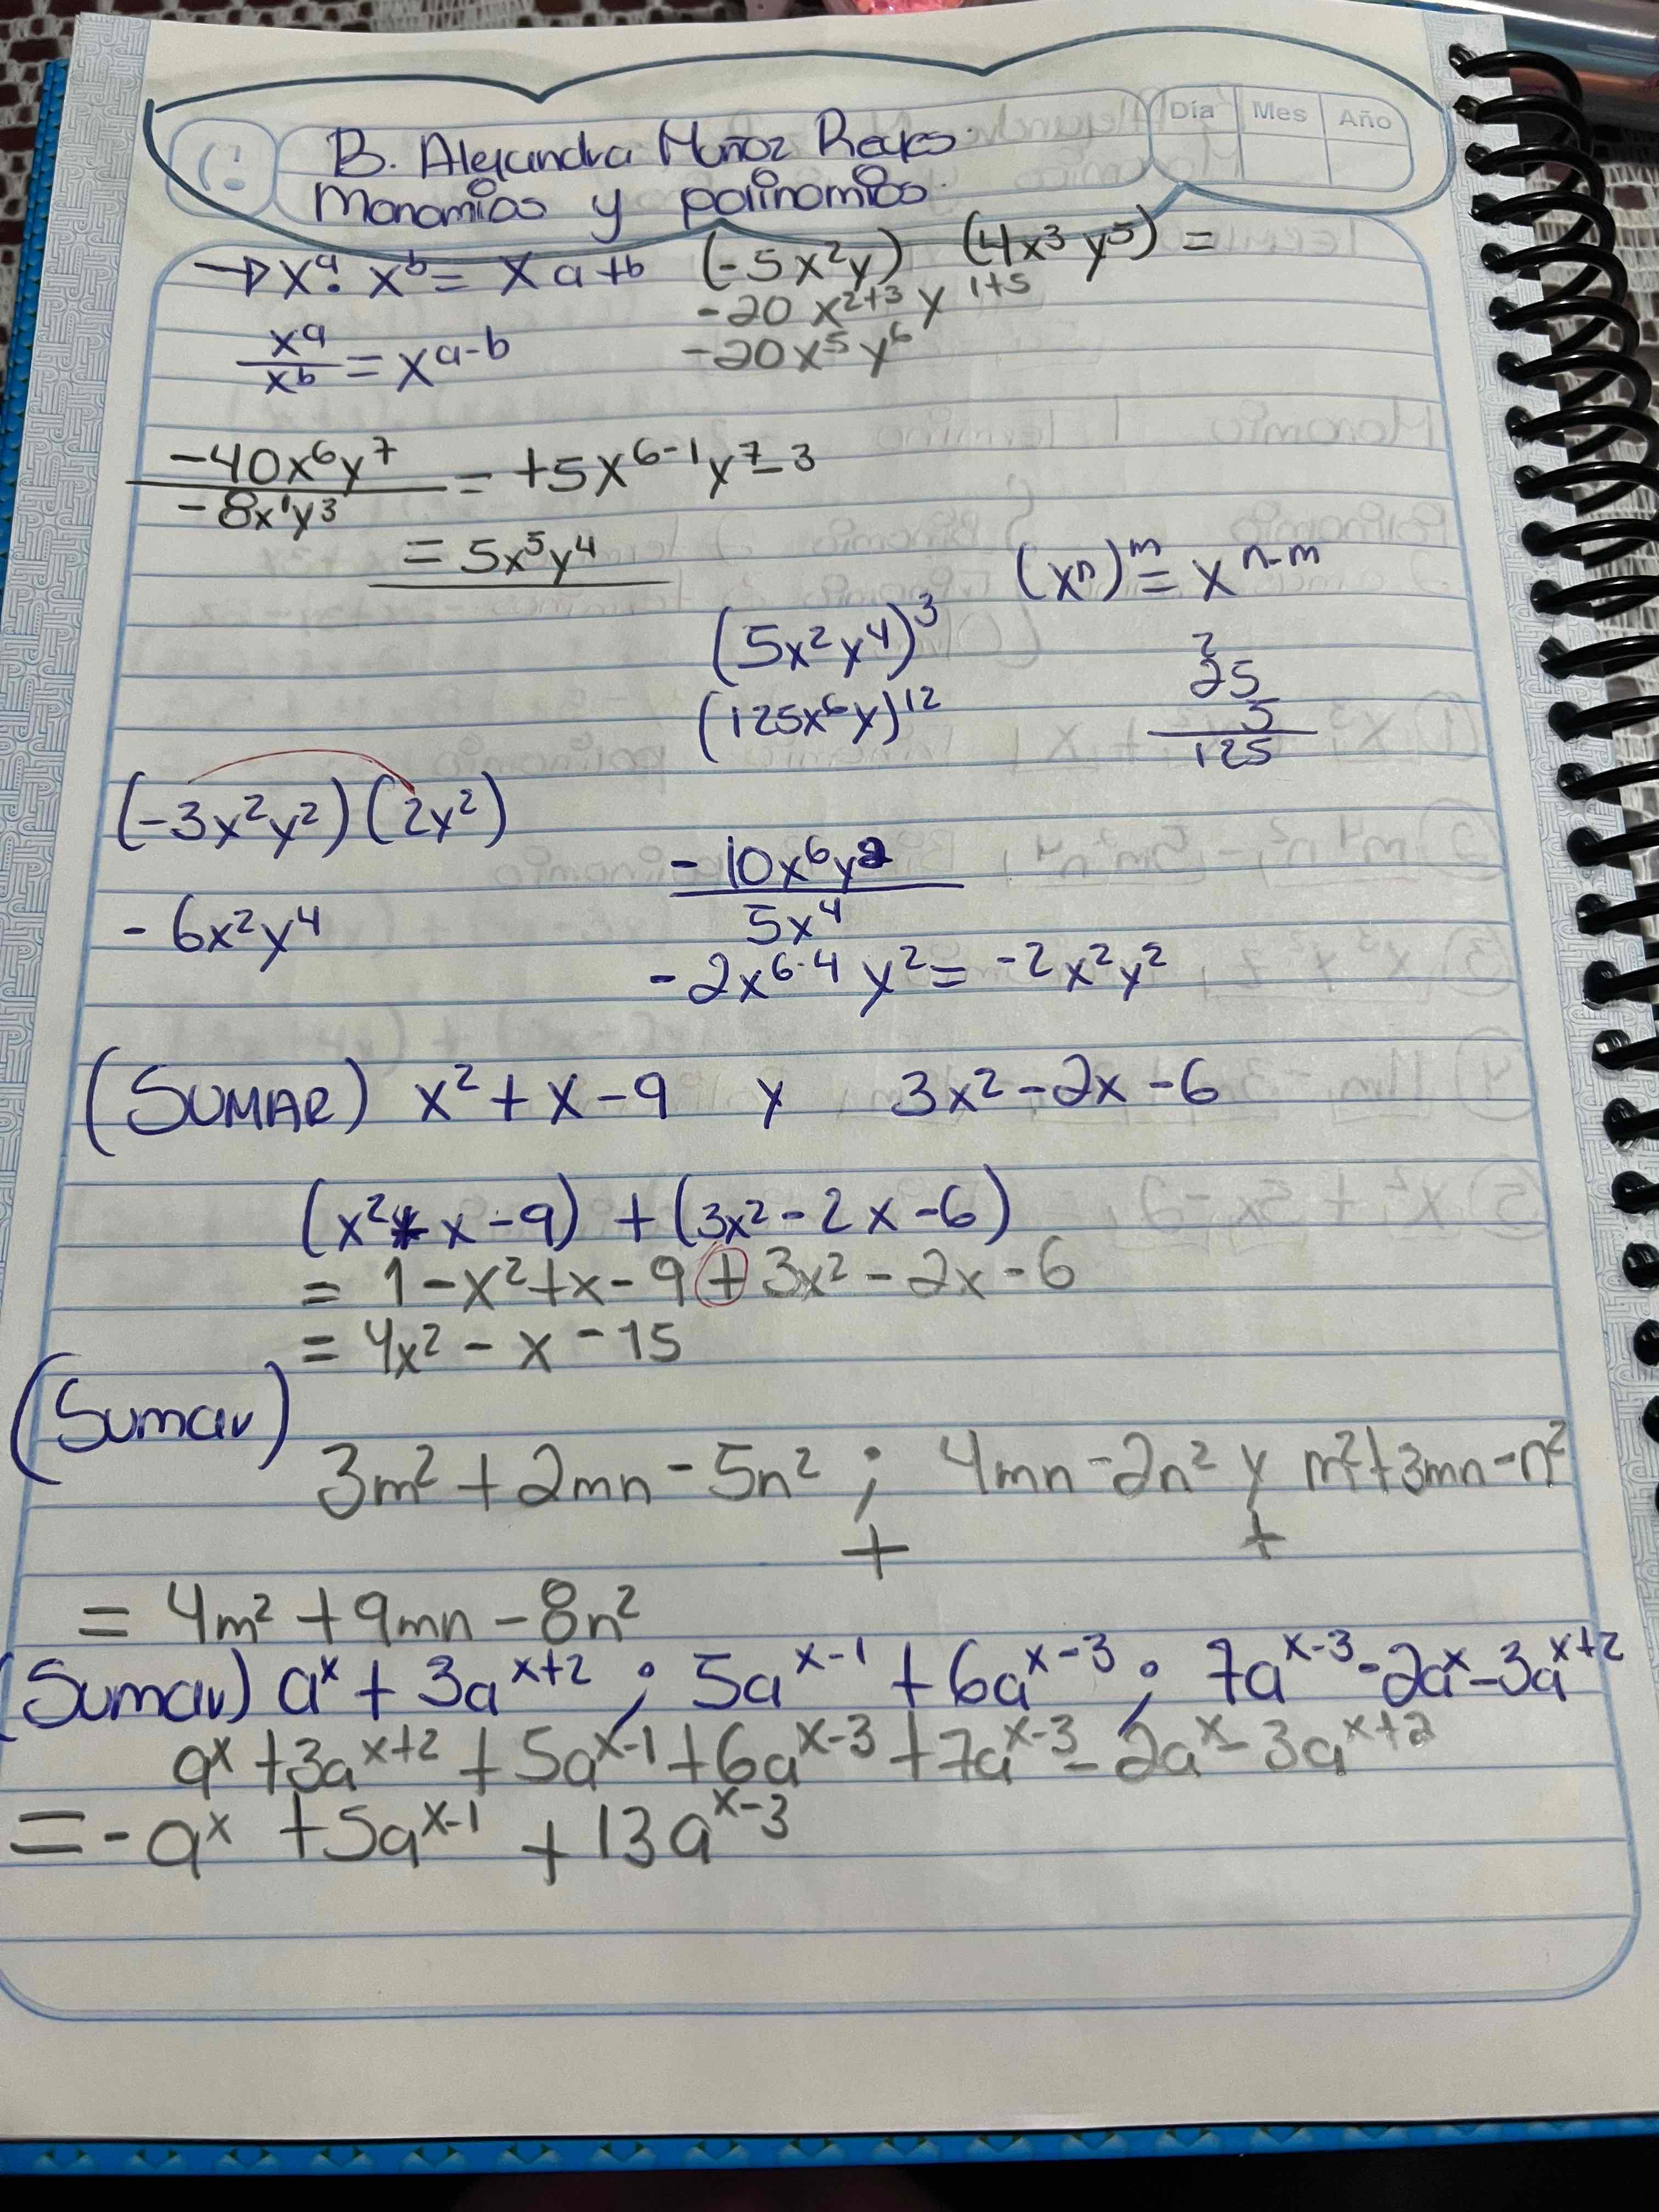 Día Mes Año
B. Alejandra Muñoz
Monomios y polinomios.
→ x^a · x^b = x a+b (-5x²y) (4x³y⁵) =
-20 x^2+3 y^1+5
x^a/x^b = x^a-b -20x⁵y⁶
-40x⁶y⁷/-8x¹y³ = +5x^6-1 y^7-3
= 5x⁵y⁴
(xⁿ)^m = x^n-m
(5x²y⁴)³
2
25
(125x⁶y)¹²
5
125
(-3x²y²)(2y²)
-10x⁶y²/5x⁴
- 6x²y⁴
-2x^6-4 y² = -2x²y²
(SUMAR) x² + x - 9 y 3x² - 2x - 6
(x² + x - 9) + (3x² - 2x - 6)
= 1 - x² + x - 9 + 3x² - 2x - 6
= 4x² - x - 15
(Sumar)
3m² + 2mn - 5n² ; 4mn - 2n² y m² + 3mn - n²
+ +
= 4m² + 9mn - 8n²
(Sumar) a^x + 3a^x+2 ; 5a^x-1 + 6a^x-3 ; 7a^x-3 - 2a^x - 3a^x+2
a^x + 3a^x+2 + 5a^x-1 + 6a^x-3 + 7a^x-3 - 2a^x - 3a^x+2
= -a^x + 5a^x-1 + 13a^x-3